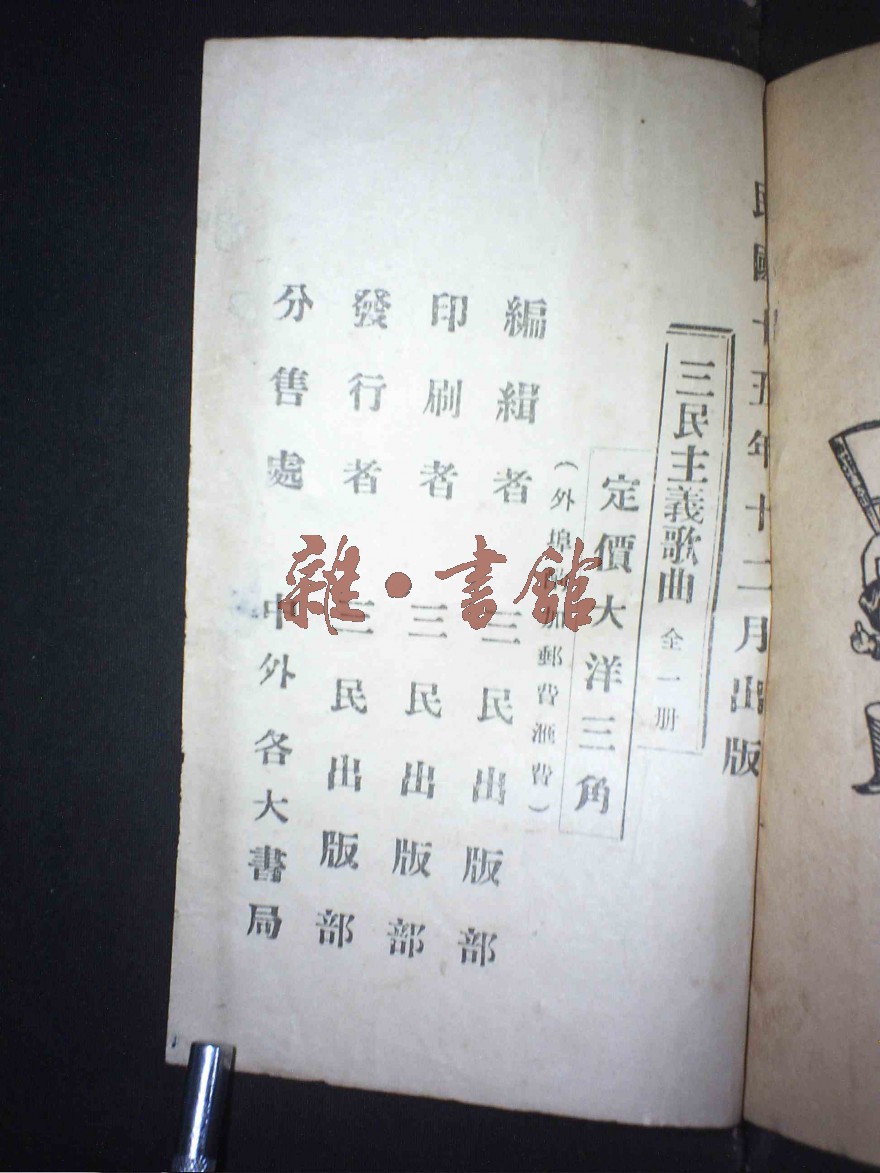 民國十五年十二月出版
三民主義歌曲 全一册
定價大洋三角
(外埠 加郵費滙費)
編緝者 三民出版部
印刷者 三民出版部
發行者 三民出版部
分售處 中外各大書局
雜·書館